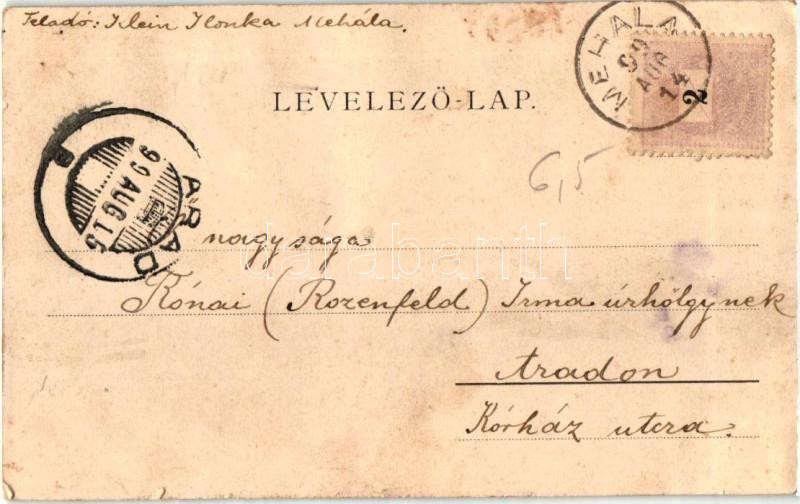 Feladó: Klein Ilonka Mehála.
MEHALA
99
AUG
14
2
LEVELEZŐ-LAP.
ARAD
99 AUG 15
B
6,5
nagysága
darabanth
Rónai (Rozenfeld) Irma úrhölgynek
Aradon
Kórház utcza.